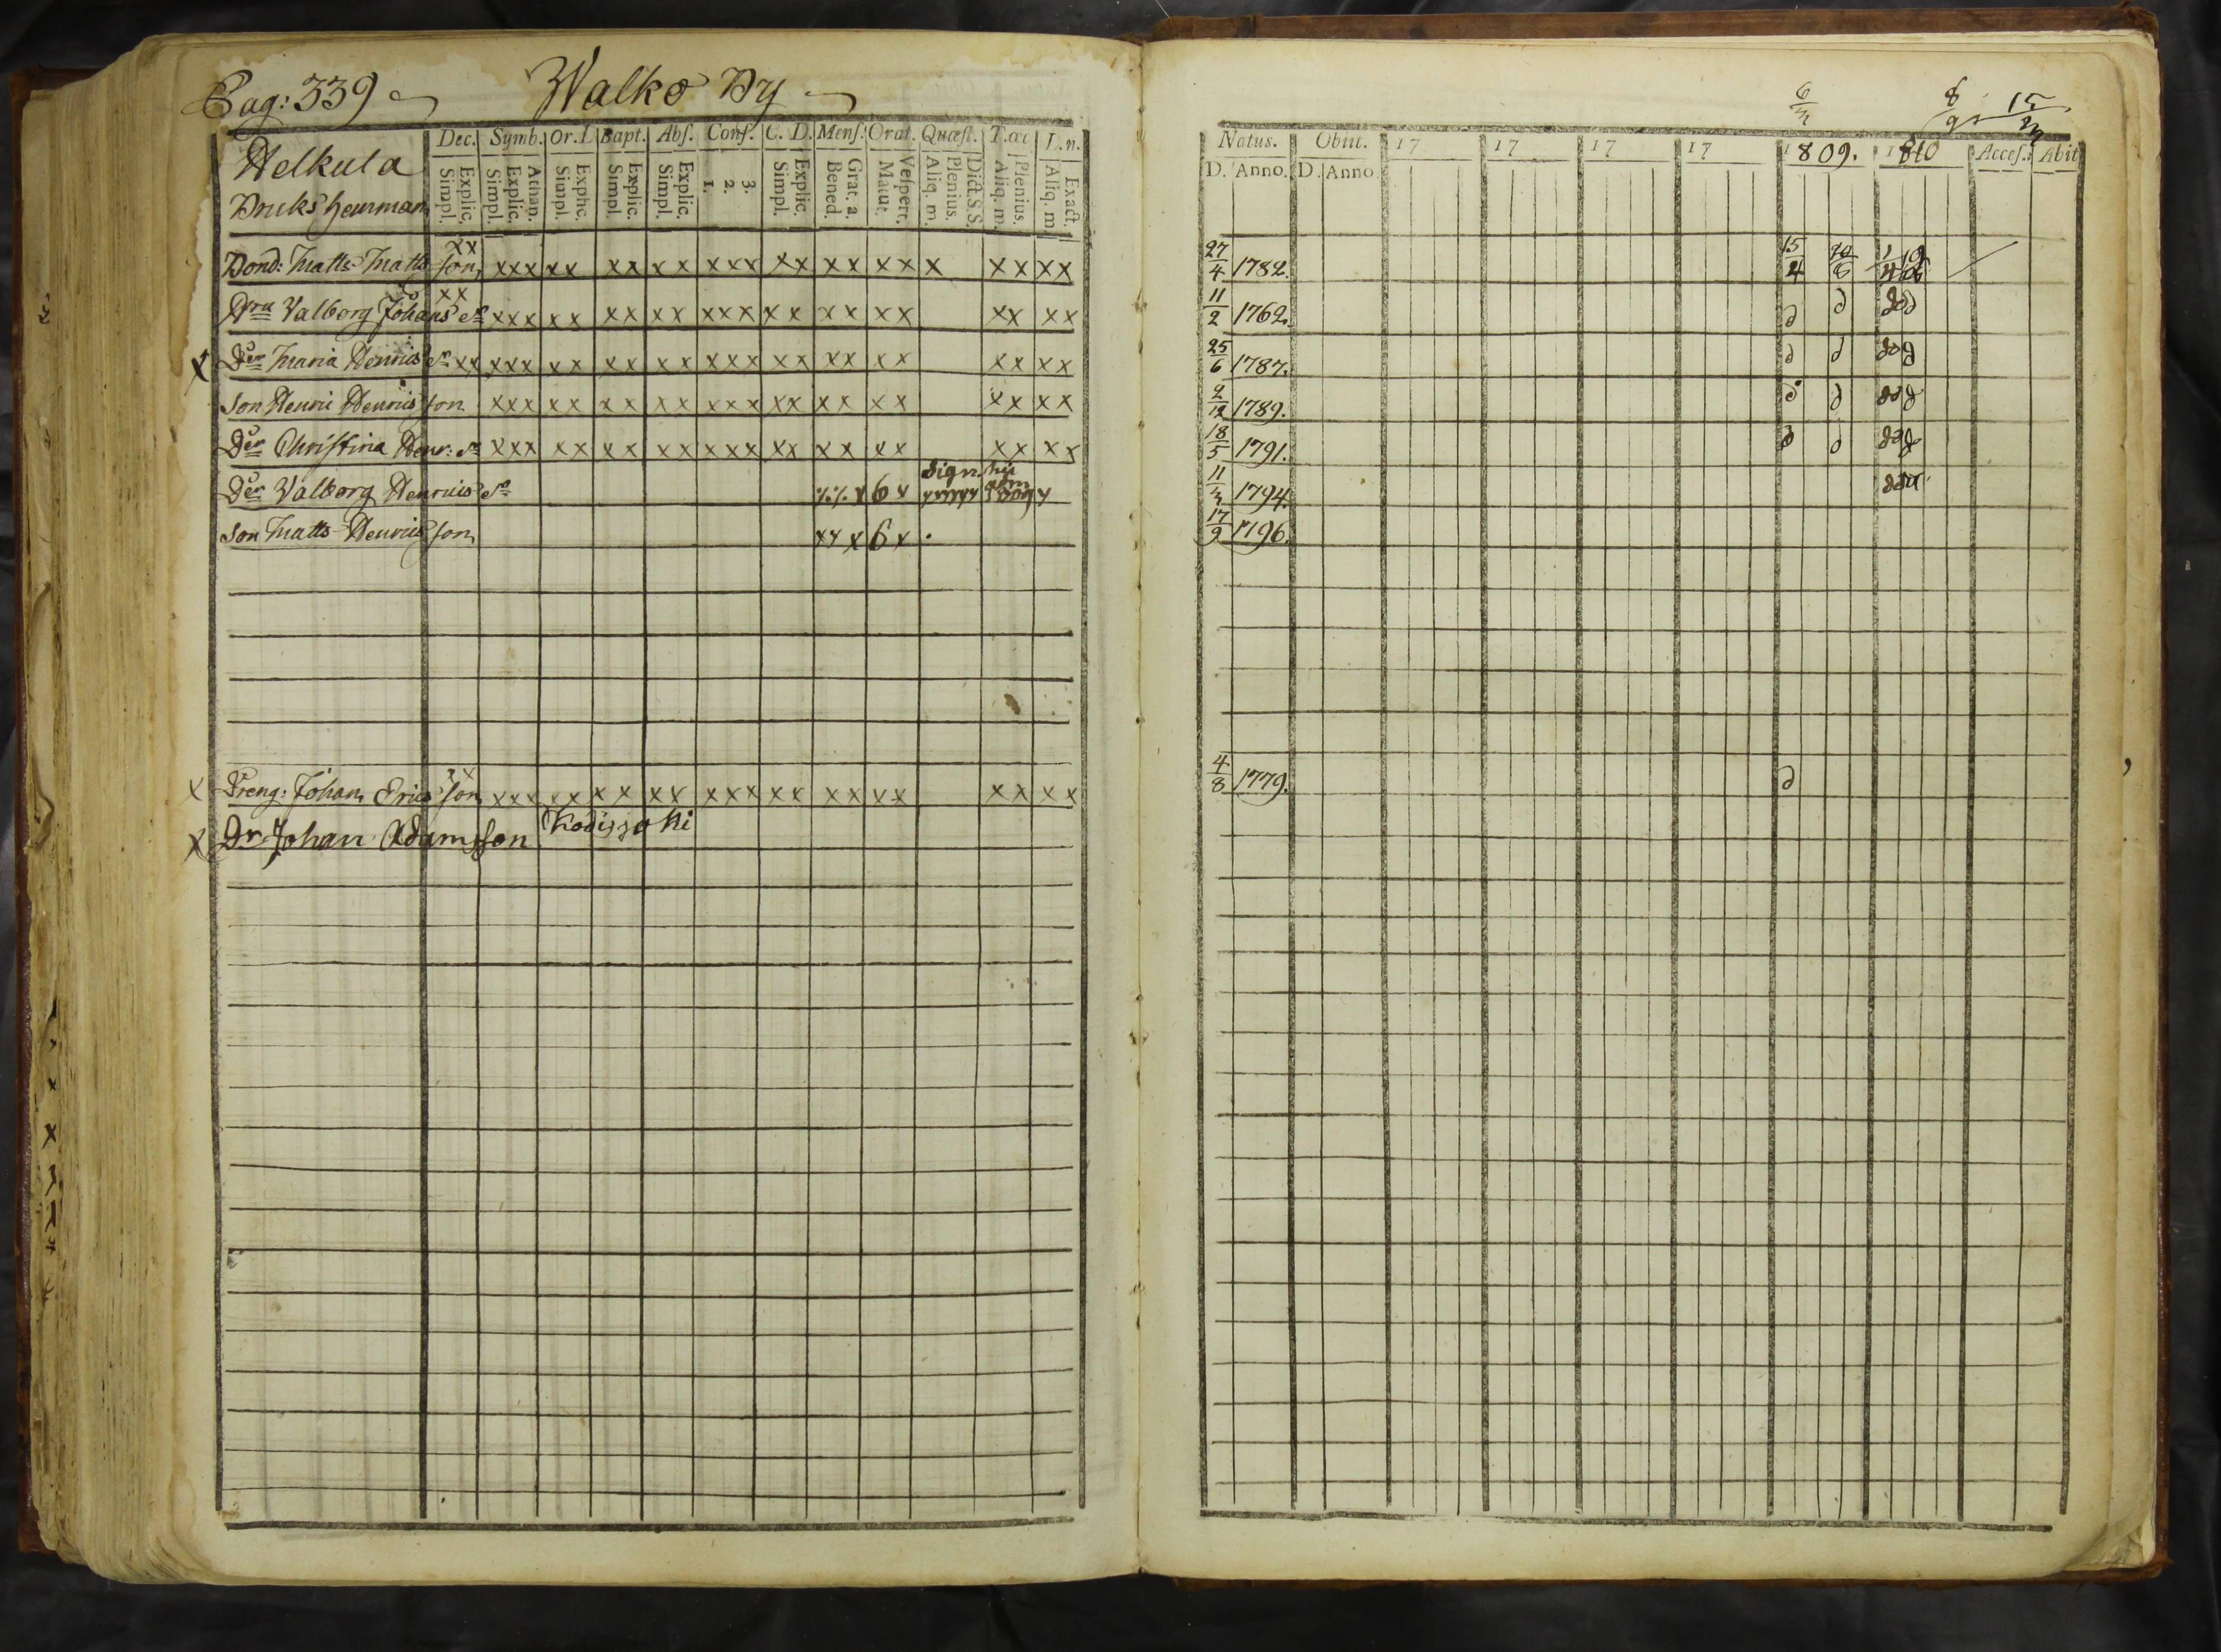 Pag: 339 Walko By
Dec. Symb. Or.D. Bapt. Abſ. Conf. C. D. Menſ: Orat. Quæſt. T.œc L.n.
Helkula
Simpl. Explic. Simpl. Explic. Athan. Simpl. Explic. Simpl. Explic. Simpl. Explic. 1. 2. 3. Simpl. Explic. Bened. Grat. a. Matut. Veſpert. Aliq. m. Plenius. Dict.S.S. Aliq. m. Plenius. Aliq. m. Exact.
Bruks
xx
Bond: Matts Matts son xxx xx xx xx xxx xx xx xx x xx xx
xx
Valborg Johans dr xxx xx xx xx xxx xx xx xx xx xx
x Dr Maria Henrics dr xx xxx xx xx xx xxx xx xx xx xx xx
Son Henric Henrics son xxx xx xx xx xxx xx xx xx xx xx
Dr Christina Henr: dr xxx xx xx xx xxx xx xx xx xx xx
Sign.
Dr Valborg Henrics dr x 6 x
Son Matts Henrics son xx x 6 x
xx
x Dreng: Johan Erics son xxx xx xx xx xxx xx xx xx xx xx
x Dr Johan Adamsson
6/3 8/9 15/3
Natus. Obiit. 17 17 17 17 1809. 1810 Acceſ. Abit
D. Anno. D. Anno
27/4 1782. 15/4
11/2 1762. d d
25/6 1787. d d
2/12 1789. d d
18/5 1791. d d
11/3 1794.
17/9 1796.
4/8 1779. d